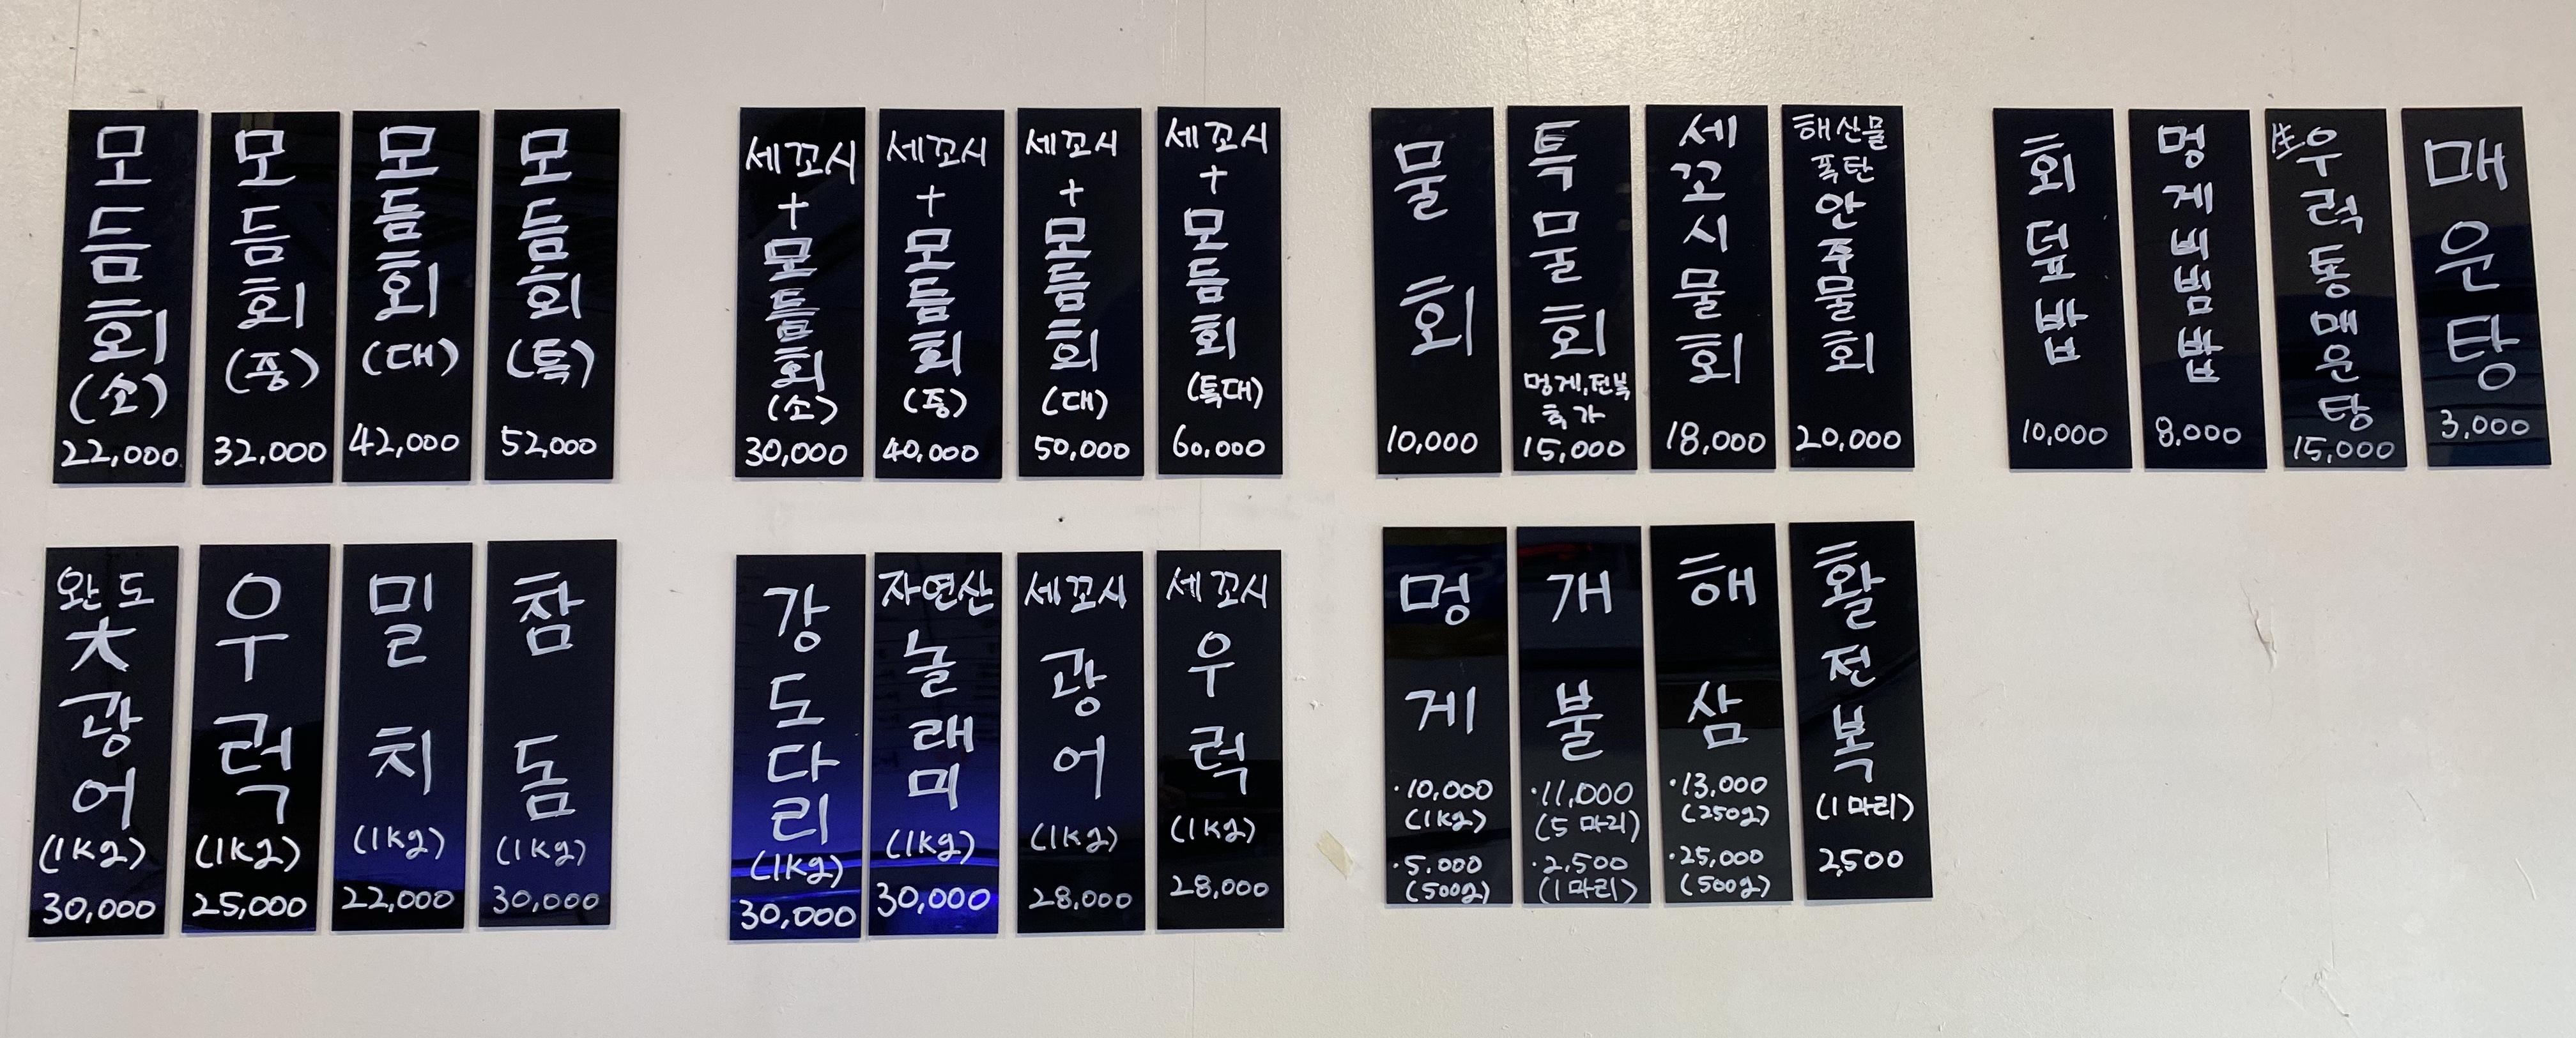 모듬회
(소)
22,000
모듬회
(중)
32,000
모듬회
(대)
42,000
모듬회
(특)
52,000
세꼬시
+
모듬회
(소)
30,000
세꼬시
+
모듬회
(중)
40,000
세꼬시
+
모듬회
(대)
50,000
세꼬시
+
모듬회
(특대)
60,000
물회
10,000
특물회
멍게,전복
추가
15,000
세꼬시물회
18,000
해산물
폭탄
안주물회
20,000
회덮밥
10,000
멍게비빔밥
8,000
生우럭통매운탕
15,000
매운탕
3,000
완도
大광어
(1kg)
30,000
우럭
(1kg)
25,000
밀치
(1kg)
22,000
참돔
(1kg)
30,000
강도다리
(1kg)
30,000
자연산
놀래미
(1kg)
30,000
세꼬시
광어
(1kg)
28,000
세꼬시
우럭
(1kg)
28,000
멍게
·10,000
(1kg)
·5,000
(500g)
개불
·11,000
(5마리)
·2,500
(1마리)
해삼
·13,000
(250g)
·25,000
(500g)
활전복
(1마리)
2,500